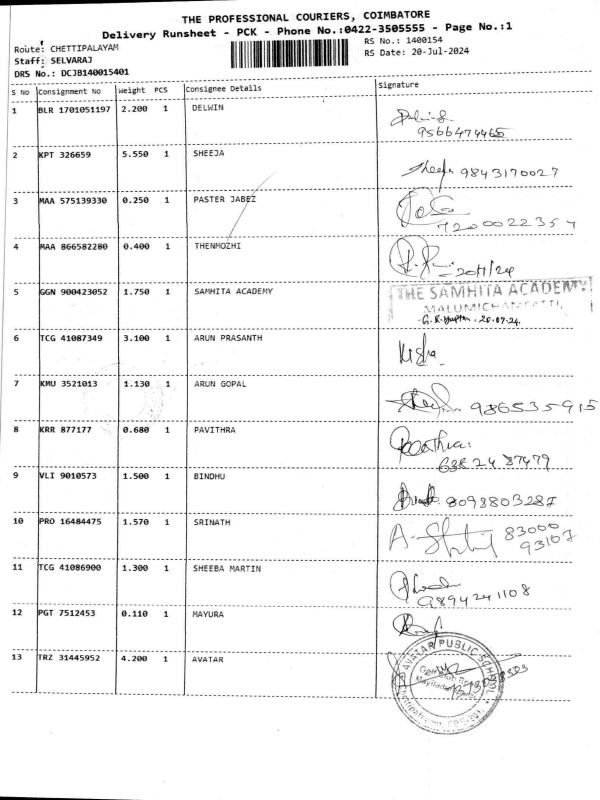 THE PROFESSIONAL COURIERS, COIMBATORE
Delivery Runsheet - PCK - Phone No.:0422-3505555 - Page No.:1
Route: CHETTIPALAYAM
RS No.: 1400154
Staff: SELVARAJ
RS Date: 20-Jul-2024
DRS No.: DCJB140015401
S No Consignment No Weight PCS Consignee Details Signature
1 BLR 1701051197 2.200 1 DELWIN
9566474465
2 KPT 326659 5.550 1 SHEEJA
Sheeja 9843170027
3 MAA 575139330 0.250 1 PASTER JABEZ
7200022357
4 MAA 866582280 0.400 1 THENMOZHI
5 GGN 900423052 1.750 1 SAMHITA ACADEMY
THE SAMHITA ACADEMY
20.07.24
6 TCG 41087349 3.100 1 ARUN PRASANTH
7 KMU 3521013 1.130 1 ARUN GOPAL
986535915
8 KRR 877177 0.680 1 PAVITHRA
9 VLI 9010573 1.500 1 BINDHU
8098803287
10 PRO 16484475 1.570 1 SRINATH
83000
93107
11 TCG 41086900 1.300 1 SHEEBA MARTIN
9894241108
12 PGT 7512453 0.110 1 MAYURA
13 TRZ 31445952 4.200 1 AVATAR
AVATAR PUBLIC SCHOOL